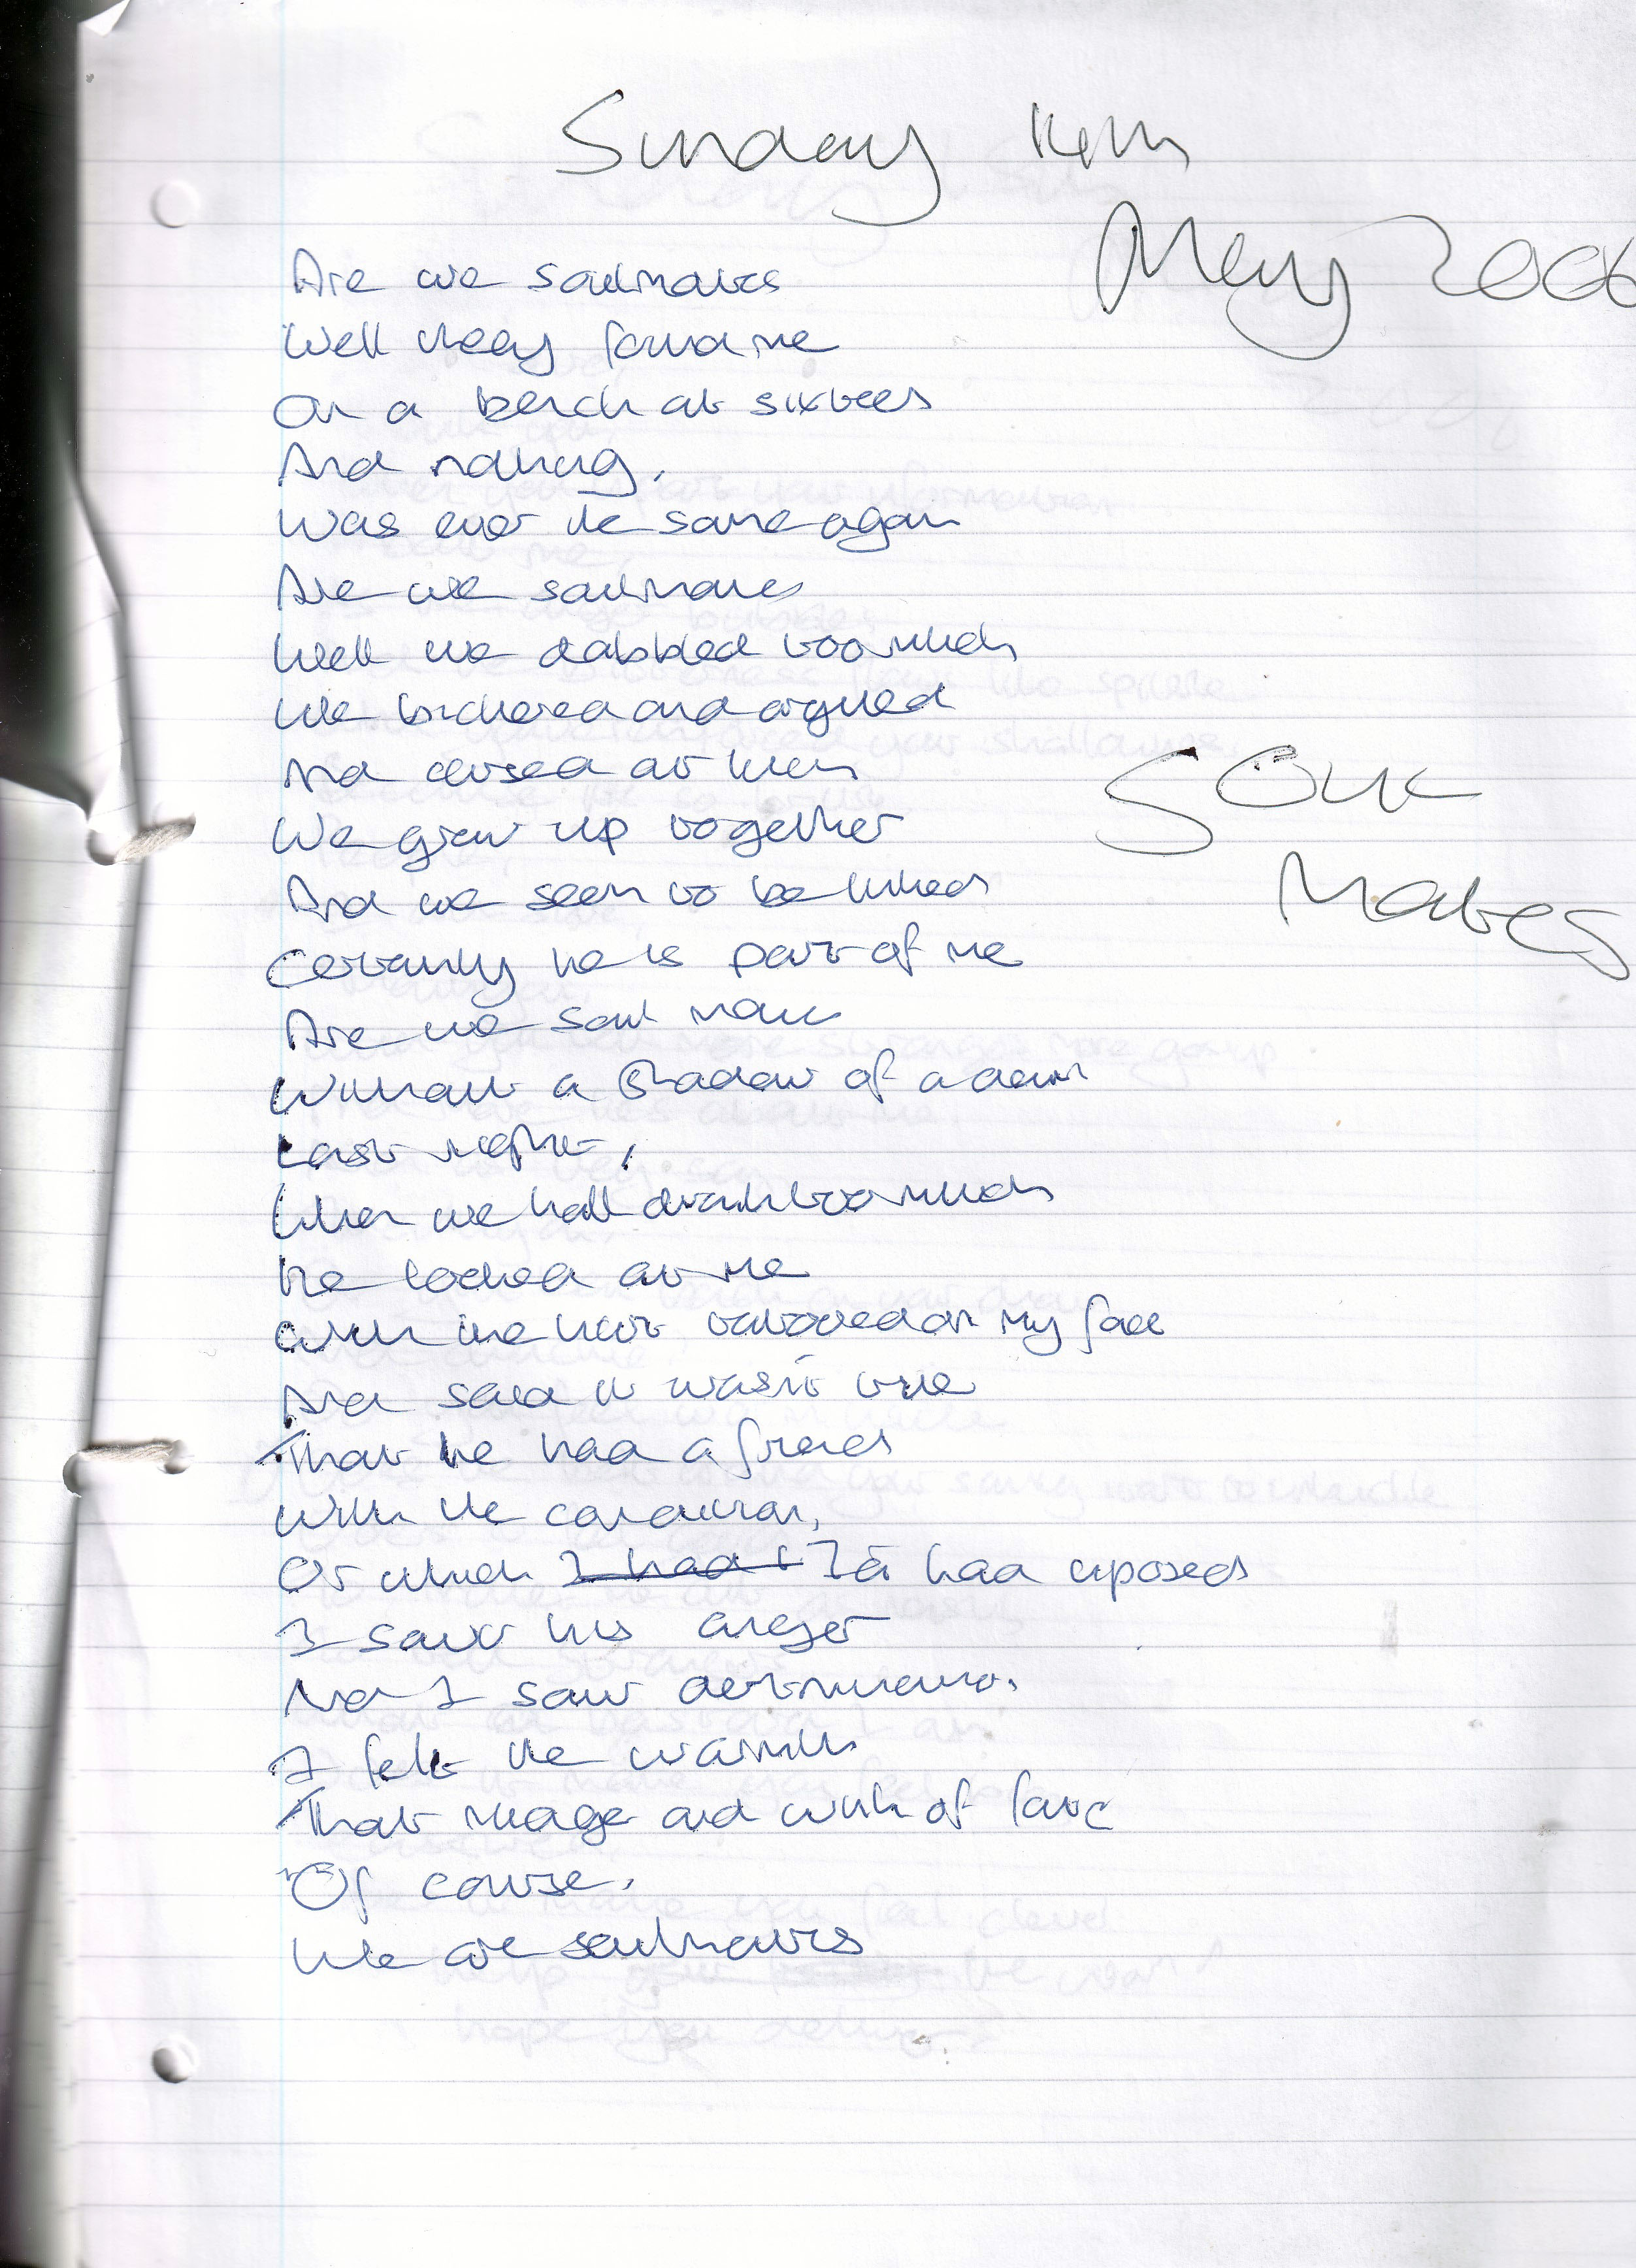 Sunday
May 2006
Are we soulmates
Well they found me
On a bench at sixteen
And nothing,
Was ever the same again
Are we soulmates
Well we dabbled too much
We bickered and argued
And at
We grew up together
And we seem to be linked
Certainly he is part of me
Are we soul mates
Without a shadow of a doubt
Last night,
When we half drunk too much
He looked at me
With the hurt tattooed on my face
And said it wasn't true
That he had a friend
With the condition,
Of which I'd had exposed
I saw his anger
And I saw
I felt the warmth
That and of love
Of course.
We are soulmates
Soul
Mates